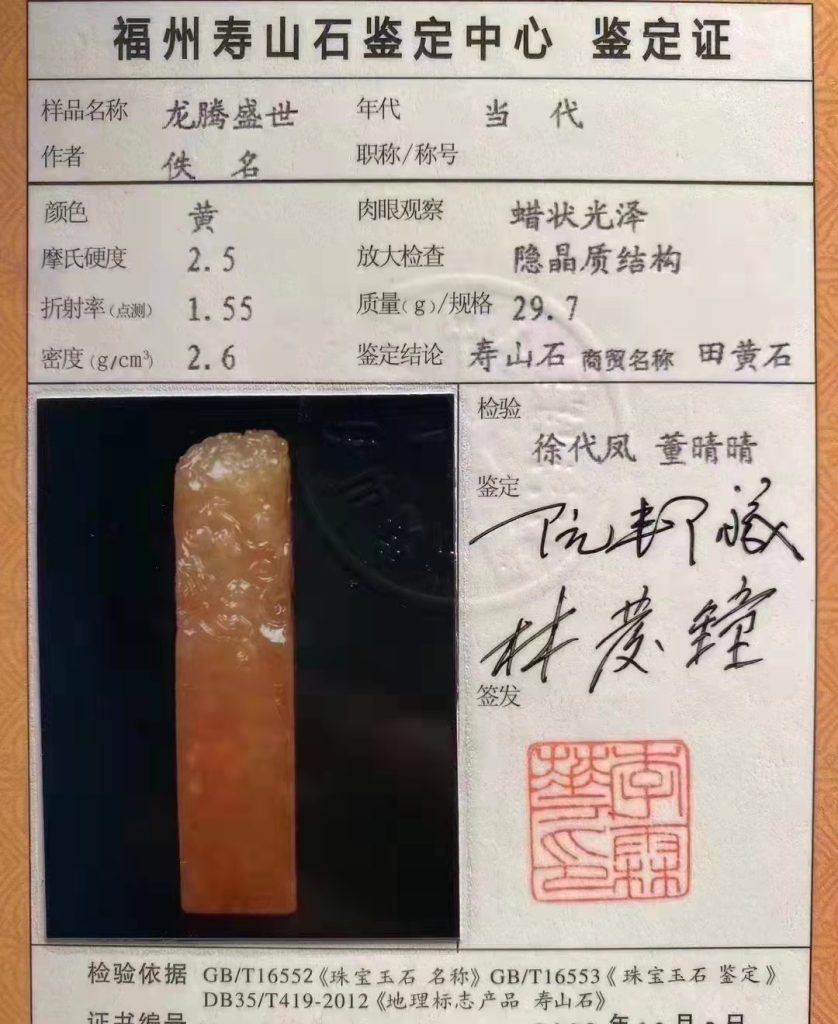 福州寿山石鉴定中心 鉴定证
样品名称 龙腾盛世 年代 当 代
作者 佚 名 职称/称号
颜色 黄 肉眼观察 蜡状光泽
摩氏硬度 2.5 放大检查 隐晶质结构
折射率(点测) 1.55 质量(g)/规格 29.7
密度(g/cm³) 2.6 鉴定结论 寿山石 商贸名称 田黄石
检验
徐代凤 董晴晴
鉴定
林
签发
李霖
华印
检验依据 GB/T16552《珠宝玉石 名称》GB/T16553《珠宝玉石 鉴定》
DB35/T419-2012《地理标志产品 寿山石》
证书编号